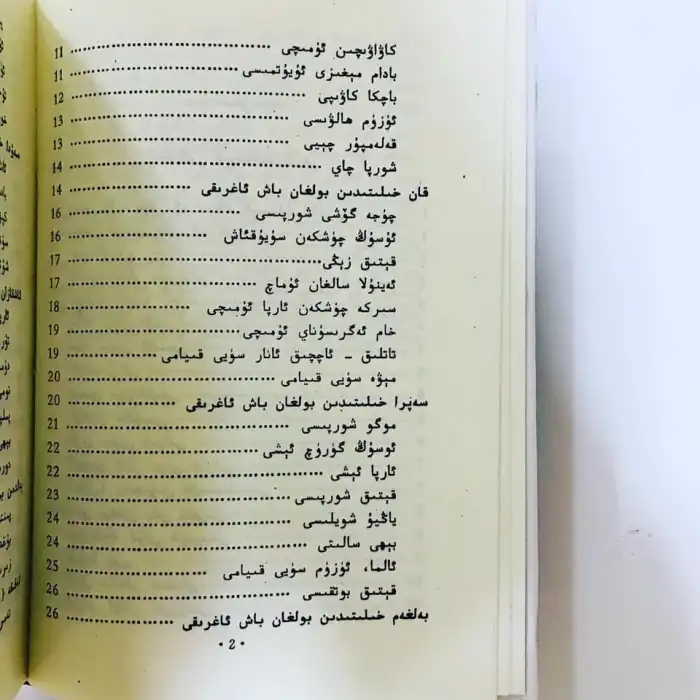 كاۋاۋىچىن ئۇمىچى ........ 11
بادام مېغىزى ئۇيۇتمىسى ........ 11
باچكا كاۋىپى ........ 12
ئۈزۈم ھالۋىسى ........ 13
قەلەمپۇر چېيى ........ 13
شورپا چاي ........ 14
قان خىلىتىدىن بولغان باش ئاغرىقى ........ 14
چۈجە گۆشى شورپىسى ........ 16
ئۇسۇڭ چۈشكەن سۇيۇقئاش ........ 16
قېتىق زىڭى ........ 17
ئەينۇلا سالغان ئۇماچ ........ 17
سىركە چۈشكەن ئارپا ئۇمىچى ........ 18
خام ئەگرىسۇناي ئۇمىچى ........ 19
تاتلىق - ئاچچىق ئانار سۈيى قىيامى ........ 19
مېۋە سۈيى قىيامى ........ 20
سەپرا خىلىتىدىن بولغان باش ئاغرىقى ........ 20
موگو شورپىسى ........ 21
ئوسۇڭ گۈرۈچ ئېشى ........ 22
ئارپا ئېشى ........ 22
قېتىق شورپىسى ........ 23
ياڭيۇ شويلىسى ........ 24
بېھى سالىتى ........ 24
ئالما، ئۈزۈم سۈيى قىيامى ........ 25
قېتىق بوتقىسى ........ 26
بەلغەم خىلىتىدىن بولغان باش ئاغرىقى ........ 26
· 2 ·